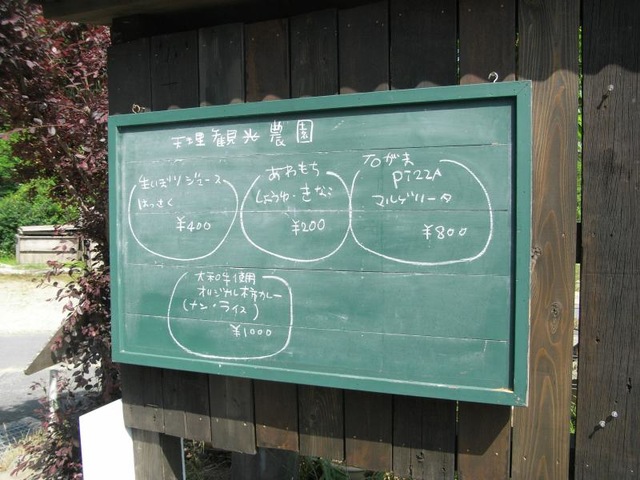 天理観光農園
生しぼりジュース
はっさく
¥400
あわもち
しょうゆ・きなこ
¥200
プロが夫
PIZZA
マルゲリータ
¥800
大和牛使用
オリジナル柿カレー
(ナン・ライス)
¥1000